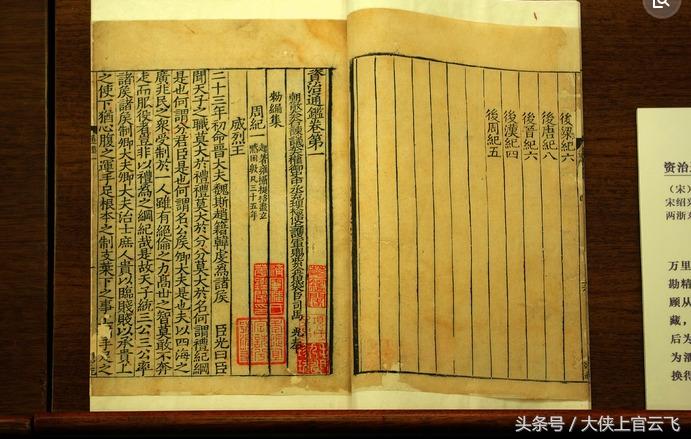 後梁紀六
後唐紀八
後晉紀六
後漢紀四
後周紀五
資治通鑑卷第一
朝散大夫右諫議大夫權御史中丞充理檢使上護軍賜紫金魚袋臣司馬 光奉
勑編集
周紀一 起著雍攝提格盡玄黓困敦凡三十五年
威烈王
二十三年初命晉大夫魏斯趙籍韓虔爲諸侯 臣光曰臣
聞天子之職莫大於禮禮莫大於分分莫大於名何謂禮紀綱
是也何謂分君臣是也何謂名公侯卿大夫是也夫以四海之
廣兆民之衆受制於一人雖有絕倫之力高世之智莫敢不奔
走而服役者豈非以禮爲之綱紀哉是故天子統三公三公率
諸侯諸侯制卿大夫卿大夫治士庶人貴以臨賤賤以承貴上
之使下猶心腹之運手足根本之制支葉下之事 手足之
资治
（宋）
宋绍兴
两浙东
万里
勘精
顾从
藏，
后为
为
换得
头条号 / 大侠上官云飞